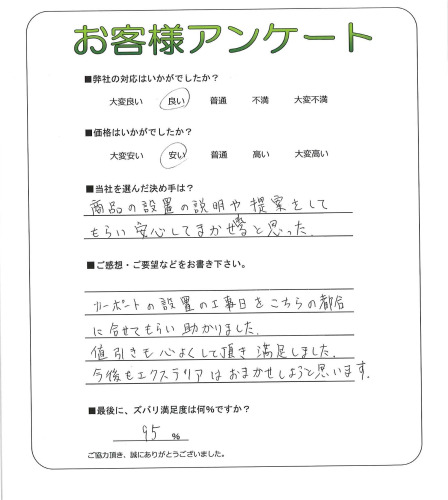 お客様アンケート
■弊社の対応はいかがでしたか?
大変良い 良い 普通 不満 大変不満
■価格はいかがでしたか?
大変安い 安い 普通 高い 大変高い
■当社を選んだ決め手は?
商品の設置の説明や提案をして
もらい安心してまかせると思った.
■ご感想・ご要望などをお書き下さい。
カーポートの設置の工事日をこちらの都合
に合せてもらい助かりました.
値引きも心よくして頂き満足しました.
今後もエクステリアはおまかせしようと思います.
■最後に、ズバリ満足度は何%ですか?
95 %
ご協力頂き、誠にありがとうございました。